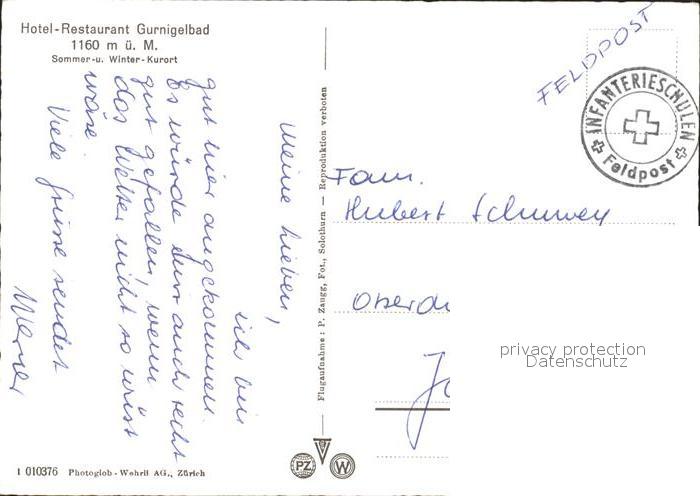 Hotel-Restaurant Gurnigelbad
1160 m ü. M.
Sommer- u. Winter-Kurort
Meine Lieben,
ich bin
gut hier angekommen.
Es würde Euch auch recht
gut gefallen, wenn
das Wetter nicht so wüst
wäre.
Viele Grüsse sendet
Werner
1 010376 Photoglob-Wehrli AG., Zürich
Flugaufnahme: P. Zaugg, Fot., Solothurn — Reproduktion verboten
PZ
W
FELDPOST
INFANTERIESCHULEN
Feldpost
Fam.
Hubert Schuwey
privacy protection
Datenschutz